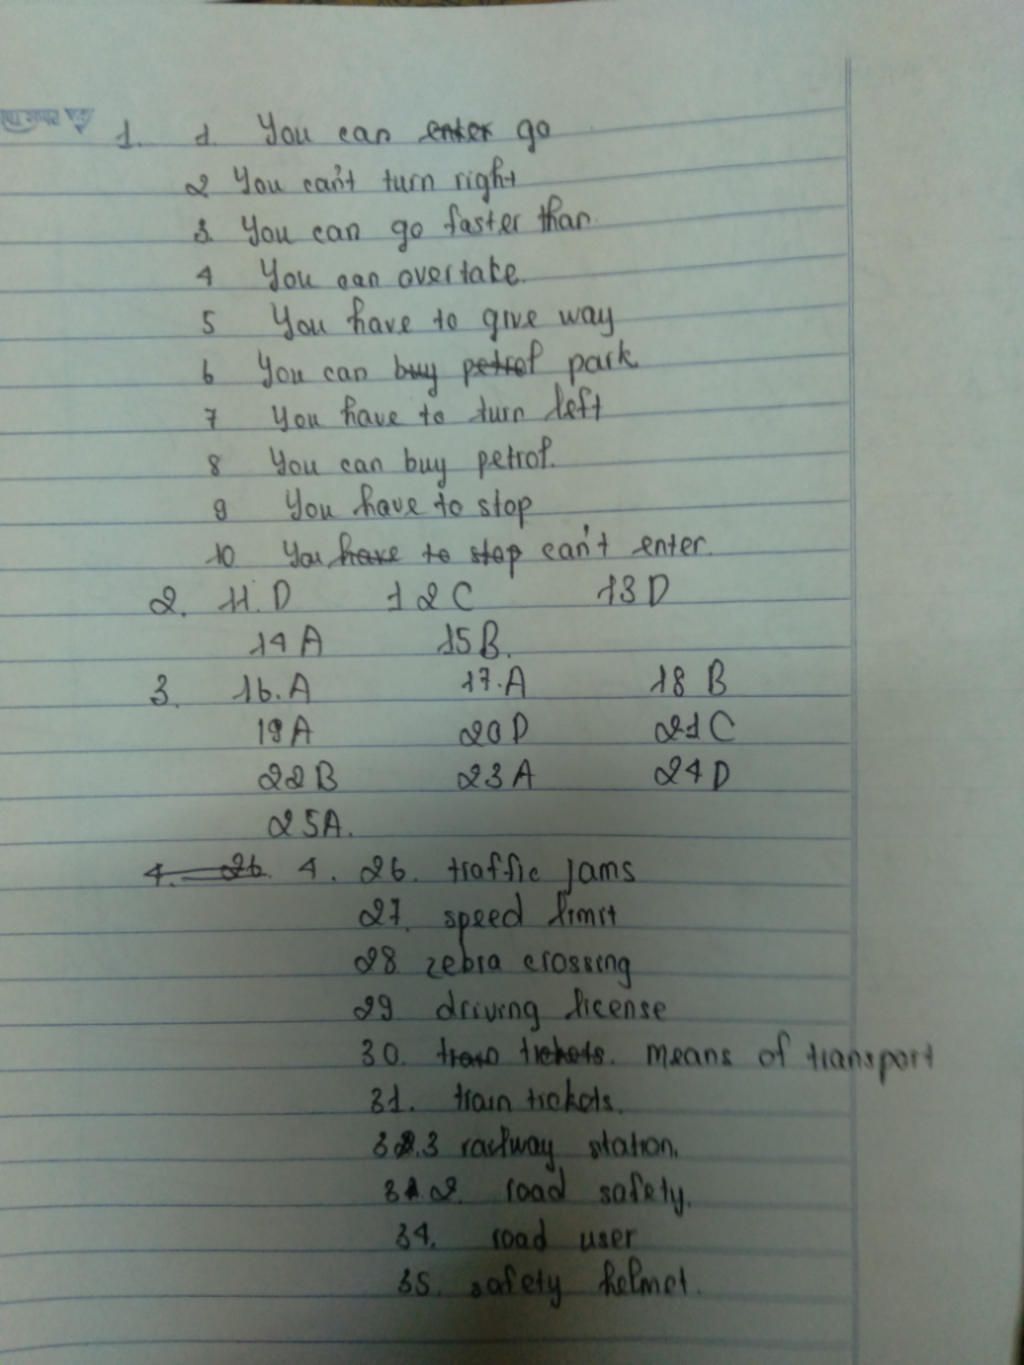 1. 1. You can enter go
2 You can't turn right
3 You can go faster than
4 You can overtake.
5 You have to give way
6 You can buy petrol park
7 You have to turn left
8 You can buy petrol.
9 You have to stop
10 You have to stop can't enter.
2. 11. D 12 C 13 D
14 A 15 B.
3. 16. A 17. A 18 B
19 A 20 D 21 C
22 B 23 A 24 D
25 A.
4. 26. 4. 26. traffic jams
27. speed limit
28 zebra crossing
29 driving license
30. train tickets. means of transport
31. train tickets.
33 railway station.
32. road safety.
34. road user
35. safety helmet.